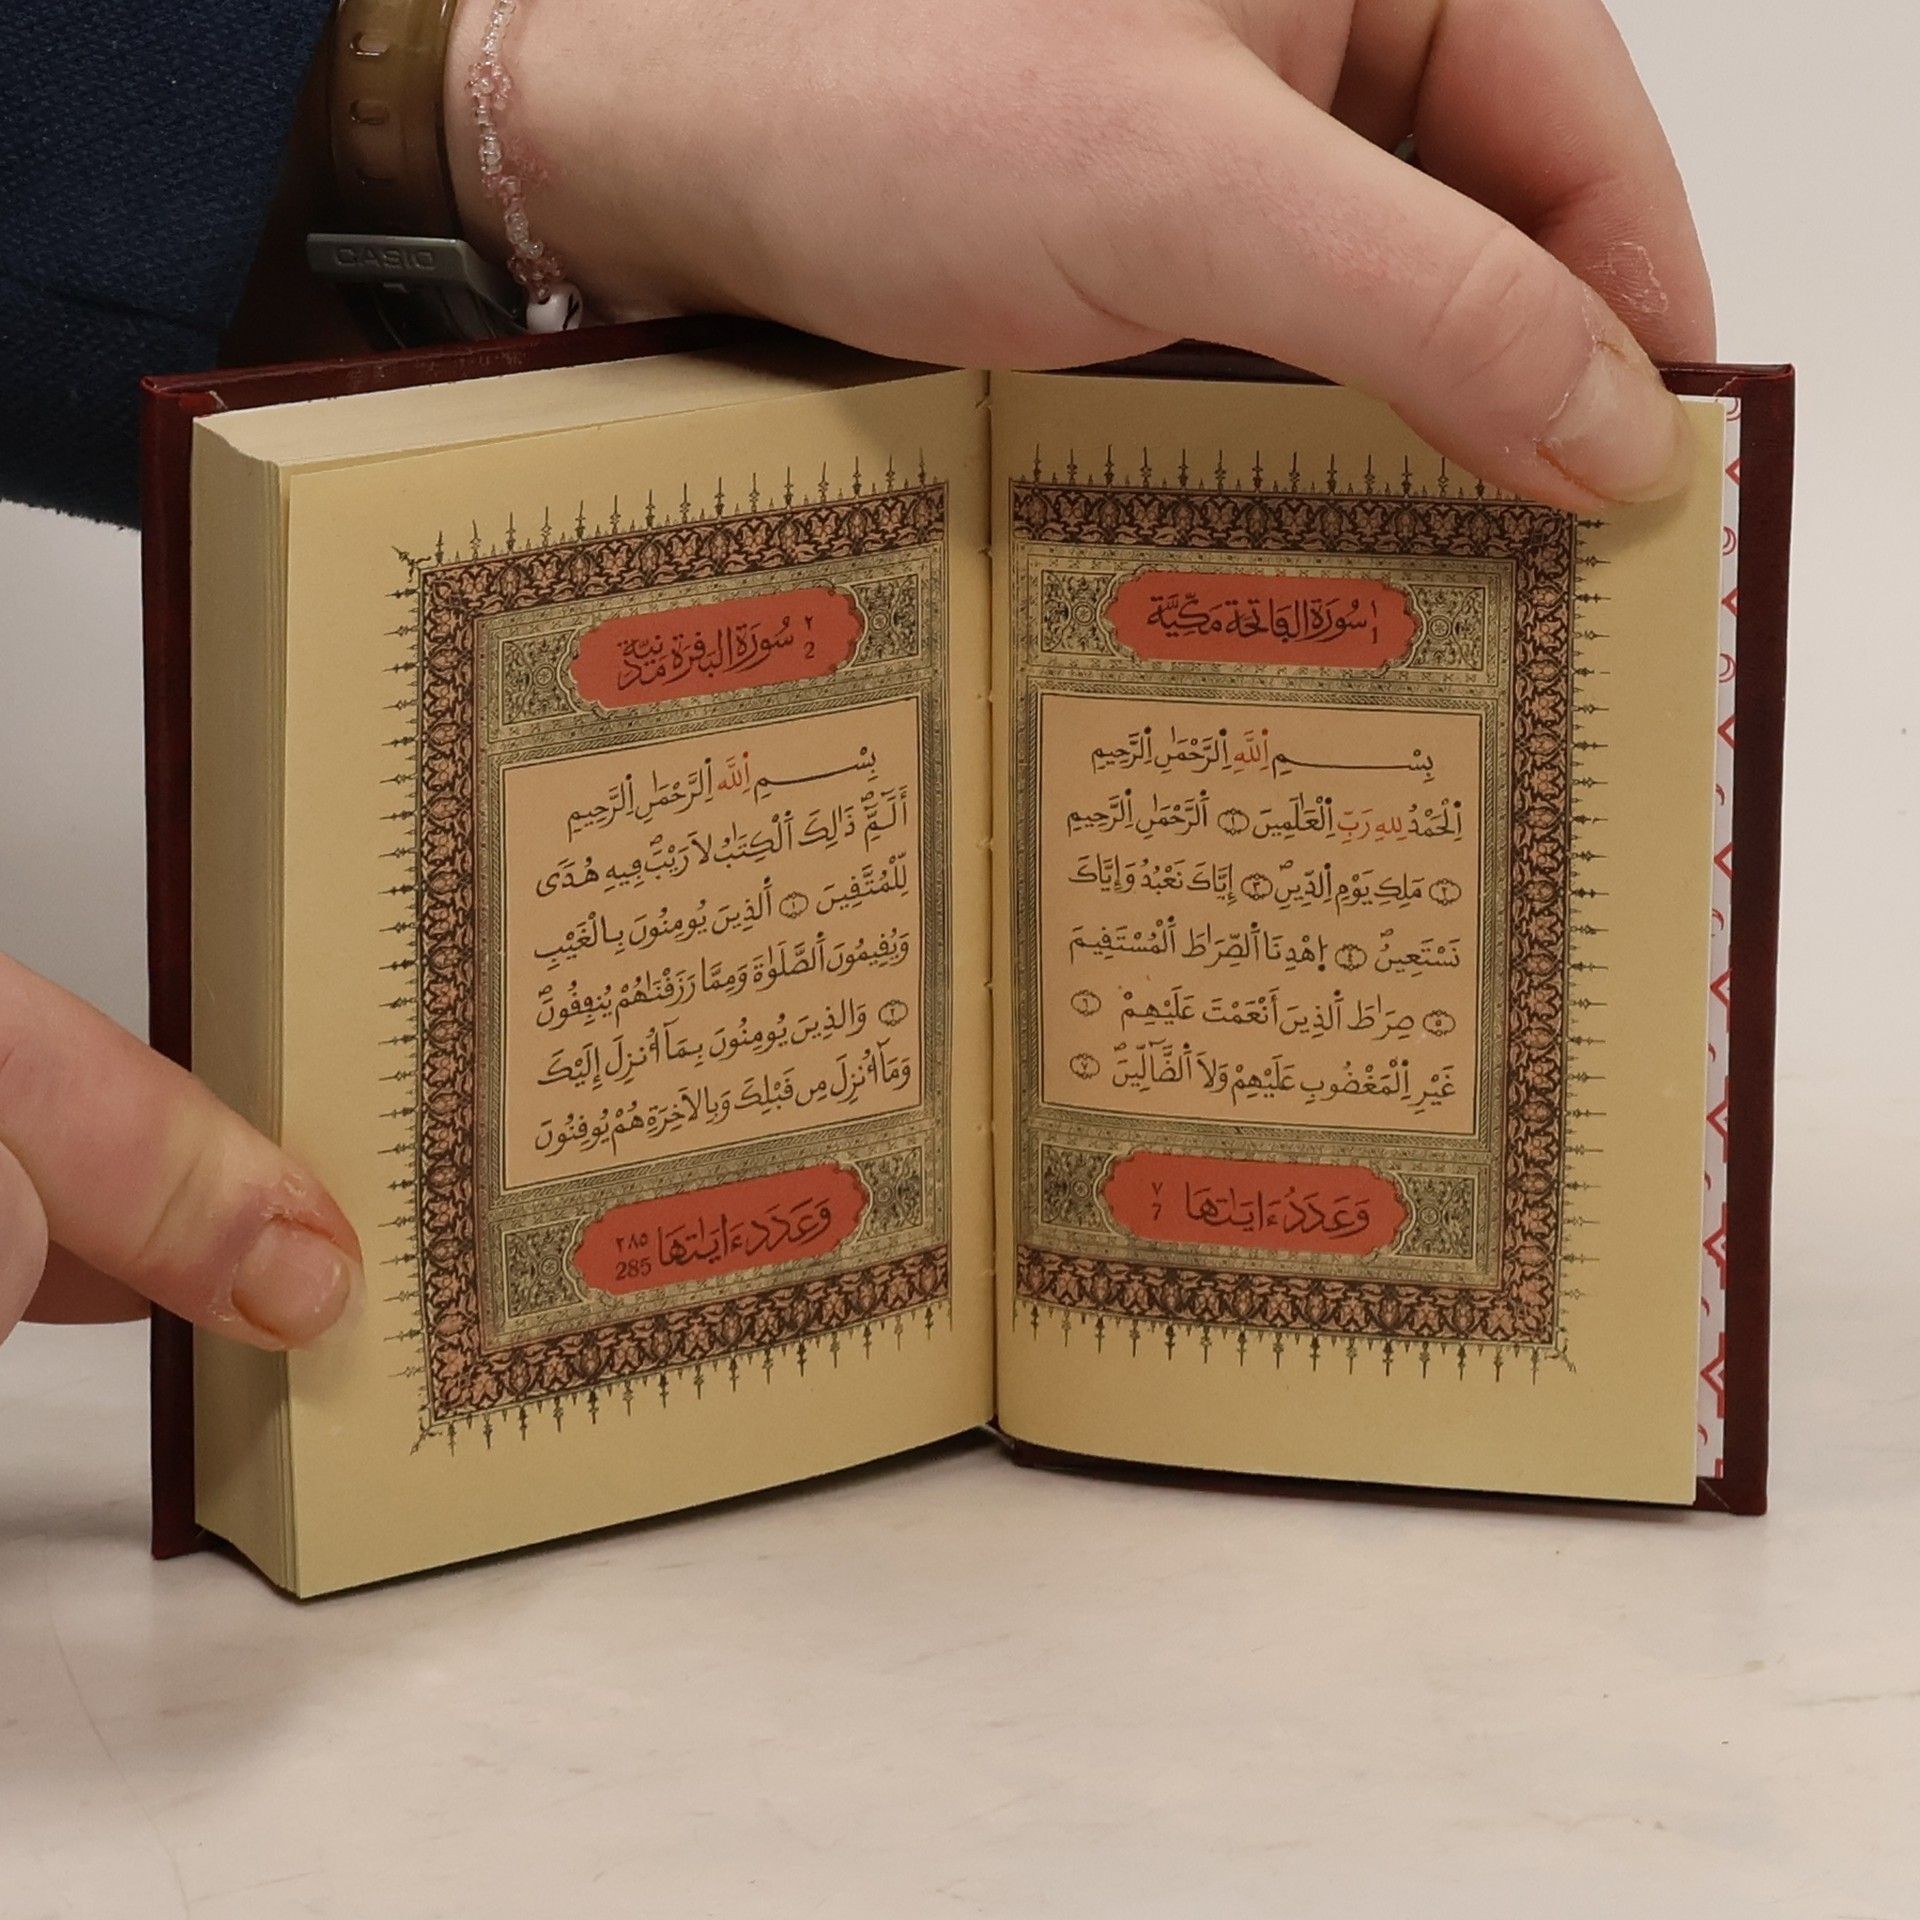 CASIO
١ سُورَةُ الفَاتِحَة مَكِّيَّة
1
بِسْمِ اِ۬للَّهِ اِ۬لرَّحْمَٰنِ اِ۬لرَّحِيمِ
اِ۬لْحَمْدُ لِلهِ رَبِّ اِ۬لْعَٰلَمِينَ ١ اَ۬لرَّحْمَٰنِ اِ۬لرَّحِيمِ
٢ مَلِكِ يَوْمِ اِ۬لدِّينِۖ ٣ إِيَّاكَ نَعْبُدُ وَإِيَّاكَ
نَسْتَعِينُۖ ٤ اِ۪هْدِنَا اَ۬لصِّرَٰطَ اَ۬لْمُسْتَفِيمَ
٥ صِرَٰطَ اَ۬لذِينَ أَنْعَمْتَ عَلَيْهِمْ ٦
غَيْرِ اِ۬لْمَغْضُوبِ عَلَيْهِمْ وَلَا اَ۬لضَّآلِّينَۖ ٧
وَعَدَدُ ءَايَٰتِهَا ٧
7
٢ سُورَةُ البَفَرَة مَدَنِيَّة
2
بِسْمِ اِ۬للَّهِ اِ۬لرَّحْمَٰنِ اِ۬لرَّحِيمِ
أَلَٓمِّٓۖ ذَٰلِكَ اَ۬لْكِتَٰبُ لَا رَيْبَۖ فِيهِ هُدىَ
لِّلْمُتَّفِينَ ١ اَ۬لذِينَ يُومِنُونَ بِالْغَيْبِ
وَيُفِيمُونَ اَ۬لصَّلَوٰةَ وَمِمَّا رَزَفْنَٰهُمْ يُنفِفُونَۖ
٢ وَالذِينَ يُومِنُونَ بِمَآ أُنزِلَ إِلَيْكَ
وَمَآ أُنزِلَ مِن فَبْلِكَ وَبِالَاخِرَةِ هُمْ يُوفِنُونَ
وَعَدَدُ ءَايَٰتِهَا ٢٨٥
285